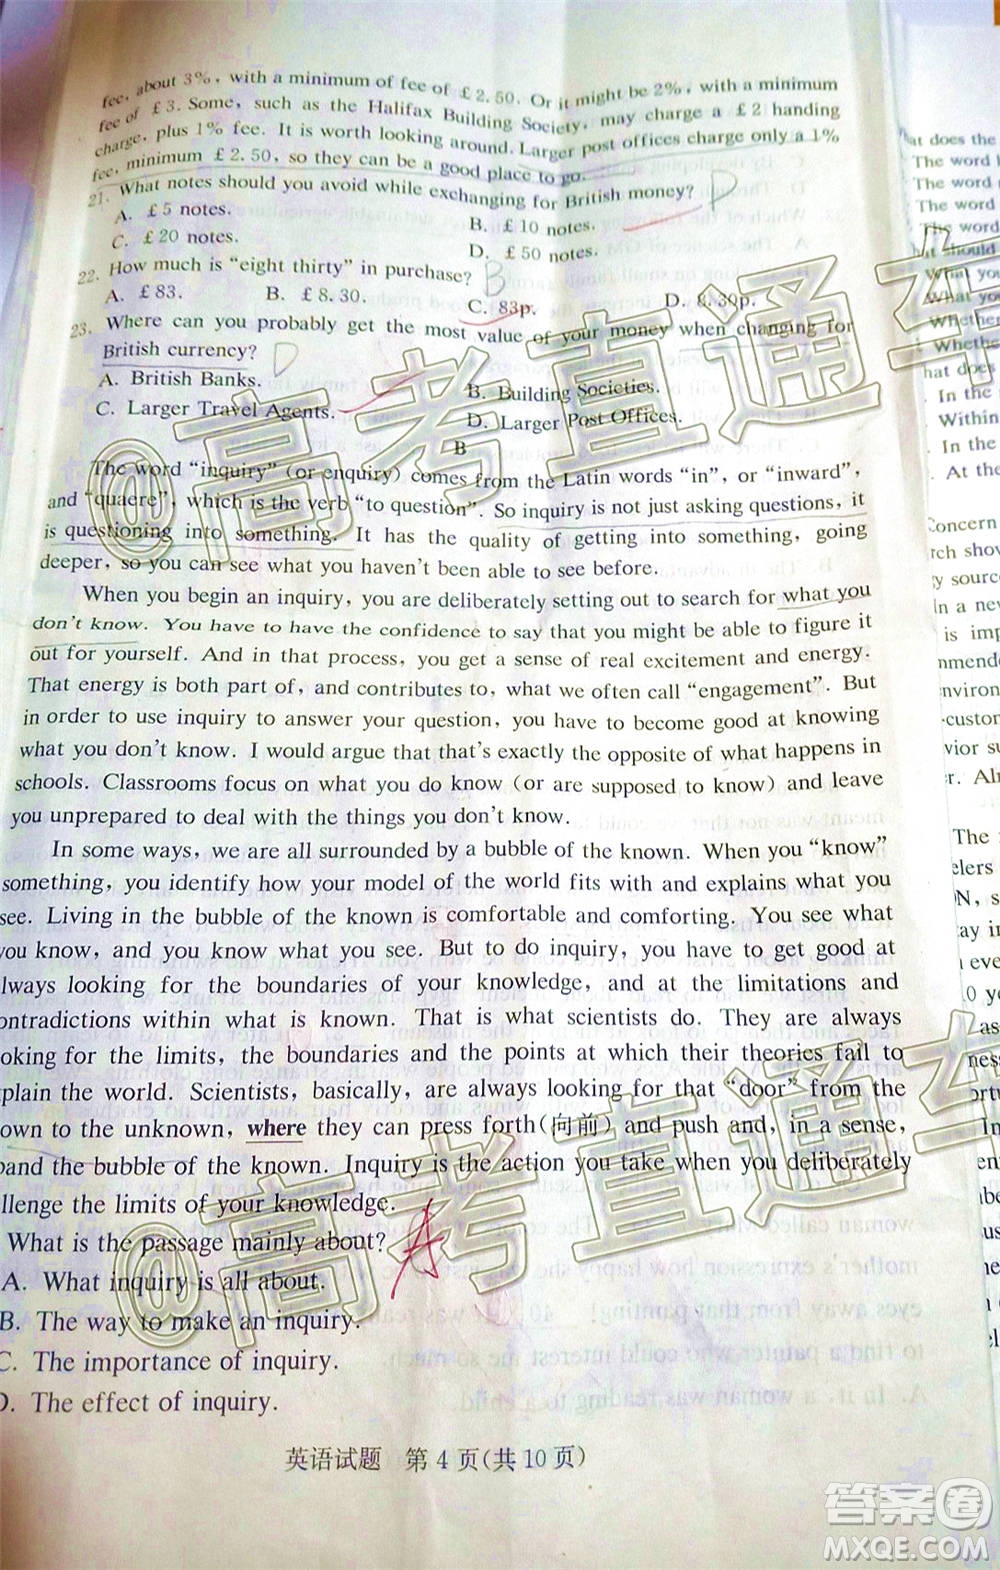 fee, about 3%, with a minimum of fee of £2.50. Or it might be 2%, with a minimum
fee of £3. Some, such as the Halifax Building Society, may charge a £2 handing
charge, plus 1% fee. It is worth looking around. Larger post offices charge only a 1%
fee, minimum £2.50, so they can be a good place to go.
21. What notes should you avoid while exchanging for British money? D
A. £5 notes.
B. £10 notes.
C. £20 notes.
D. £50 notes.
22. How much is “eight thirty” in purchase? B
A. £83.
B. £8.30.
C. 83p.
D. 8.30p.
23. Where can you probably get the most value of your money when changing for
British currency? D
A. British Banks.
B. Building Societies.
C. Larger Travel Agents.
D. Larger Post Offices.
B
The word “inquiry” (or enquiry) comes from the Latin words “in”, or “inward”,
and “quaere”, which is the verb “to question”. So inquiry is not just asking questions, it
is questioning into something. It has the quality of getting into something, going
deeper, so you can see what you haven't been able to see before.
When you begin an inquiry, you are deliberately setting out to search for what you
don't know. You have to have the confidence to say that you might be able to figure it
out for yourself. And in that process, you get a sense of real excitement and energy.
That energy is both part of, and contributes to, what we often call “engagement”. But
in order to use inquiry to answer your question, you have to become good at knowing
what you don't know. I would argue that that's exactly the opposite of what happens in
schools. Classrooms focus on what you do know (or are supposed to know) and leave
you unprepared to deal with the things you don't know.
In some ways, we are all surrounded by a bubble of the known. When you “know”
something, you identify how your model of the world fits with and explains what you
see. Living in the bubble of the known is comfortable and comforting. You see what
you know, and you know what you see. But to do inquiry, you have to get good at
lways looking for the boundaries of your knowledge, and at the limitations and
ontradictions within what is known. That is what scientists do. They are always
ooking for the limits, the boundaries and the points at which their theories fail to
plain the world. Scientists, basically, are always looking for that “door” from the
own to the unknown, where they can press forth(向前) and push and, in a sense,
pand the bubble of the known. Inquiry is the action you take when you deliberately
llenge the limits of your knowledge.
What is the passage mainly about? A
A. What inquiry is all about.
B. The way to make an inquiry.
C. The importance of inquiry.
D. The effect of inquiry.
英语试题 第 4 页(共 10 页)
@高考直通车
@高考直通车
答案圈
MXQE.COM